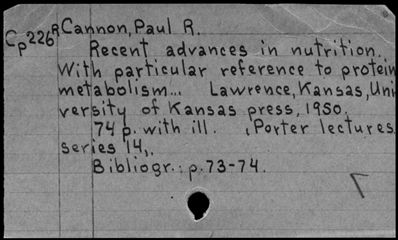 Cp226R Cannon, Paul R.
Recent advances in nutrition.
With particular reference to protein
metabolism... Lawrence, Kansas, Uni-
versity of Kansas press, 1950.
74 p. with ill. (Porter lectures,
series 14).
Bibliogr.: p.73-74.